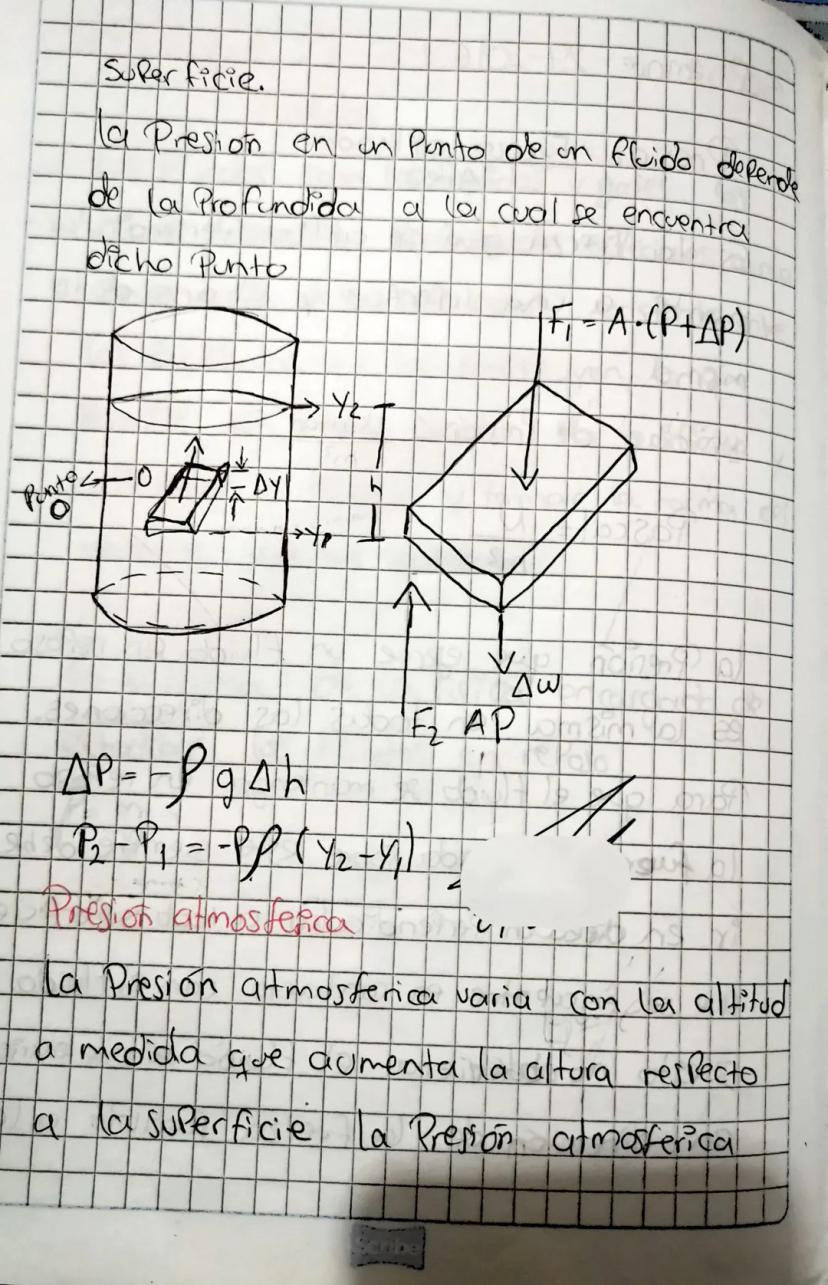 Superficie.
la Presión en un Punto de un fluido depende
de la Profundida a la cual se encuentra
dicho Punto
F₁ = A·(P+ΔP)
Y₂
h
Punto O
O
ΔY
Y₁
ΔW
F₂ AP
ΔP = -ρ g Δh
P₂-P₁ = -ρρ (Y₂-Y₁)
Presión atmosferica
La Presión atmosferica varia con la altitud
a medida que aumenta la altura respecto
a la superficie la Presión atmosferica
Scribe